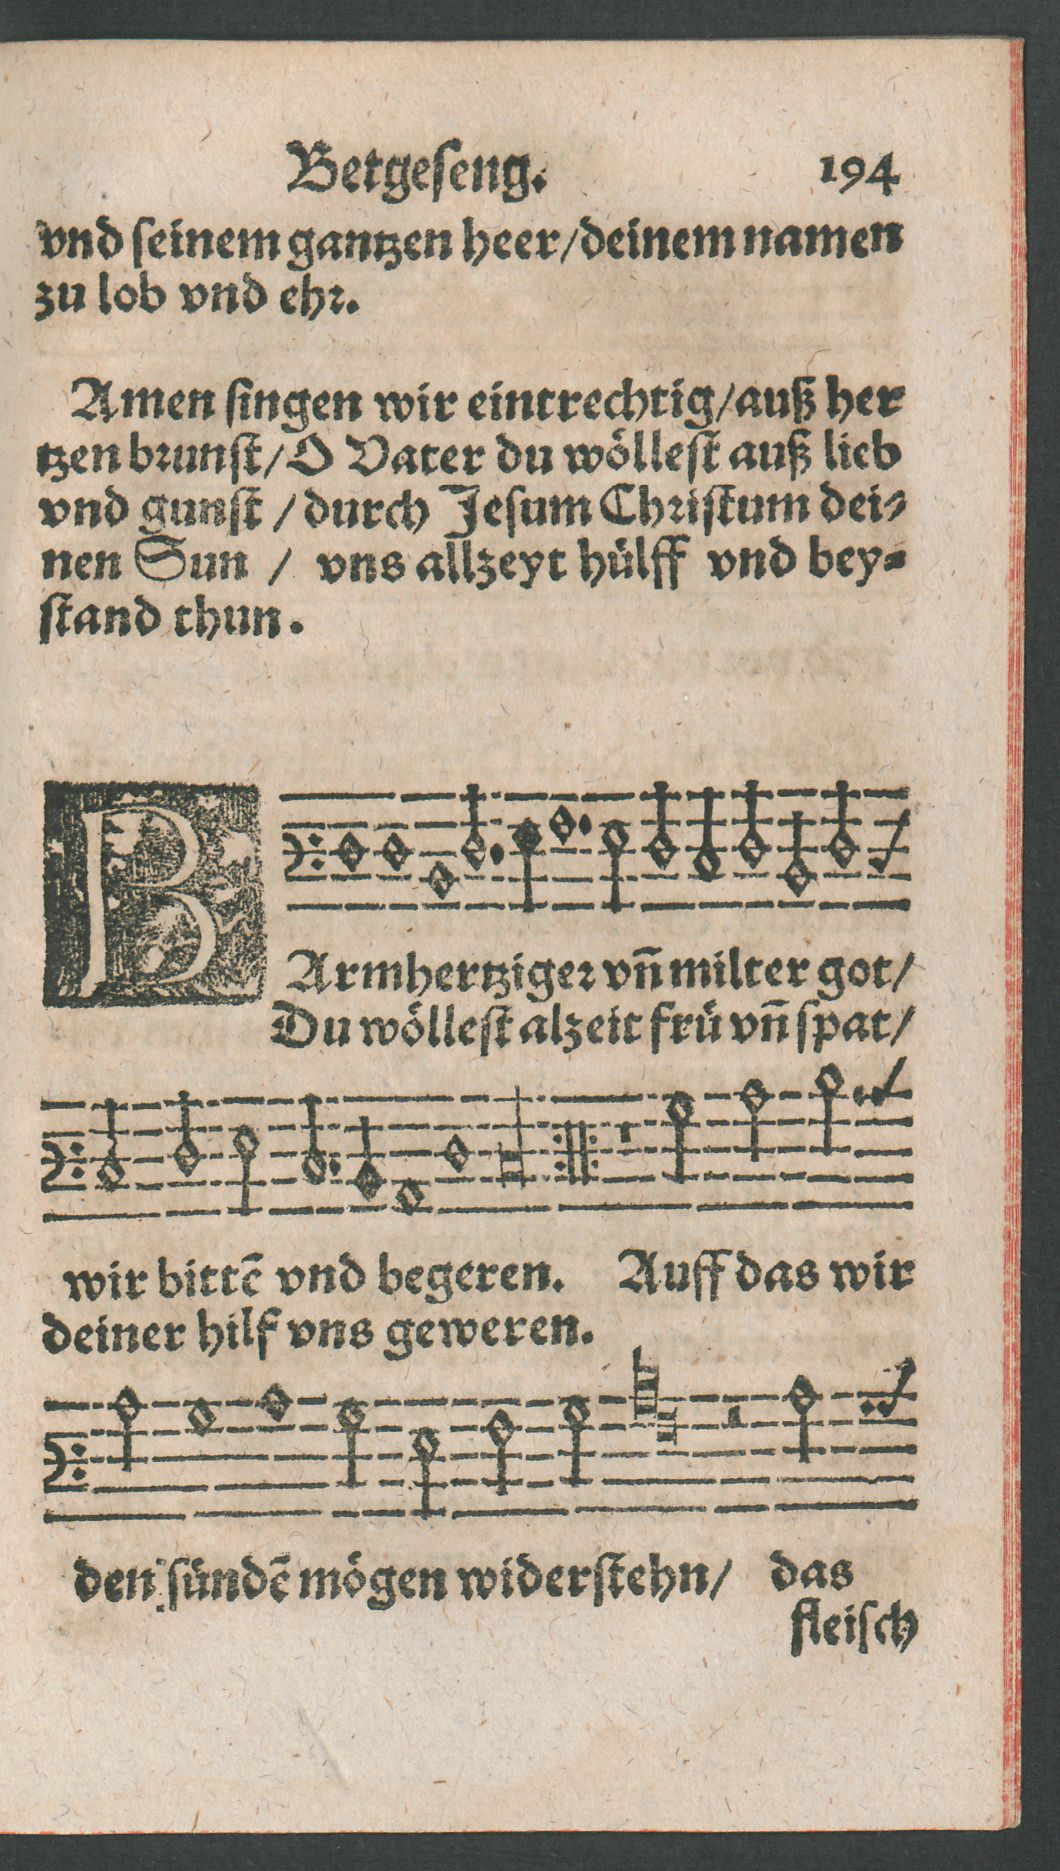 Betgeseng. 194
vnd seinem gantzen heer/deinem namen
zu lob vnd ehr.
Amen singen wir eintrechtig/auß her
tzen brunst/O Vater du wöllest auß lieb
vnd gunst / durch Jesum Christum dei-
nen Sun / vns allzeyt hülff vnd bey-
stand thun.
BArmhertziger vn̄ milter got/
Du wöllest alzeit frü vn̄ spat/
wir bittē vnd begeren. Auff das wir
deiner hilf vns geweren.
den sündē mögen widerstehn/ das
fleisch